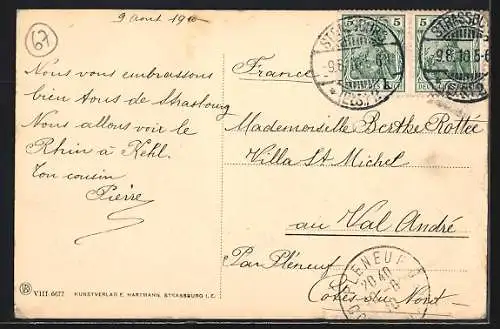 67
9 août 1910
Nous vous embrassons
bien tous de Strasbourg
Nous allons voir le
Rhin à Kehl.
Ton cousin
Pierre
France
Mademoiselle Berthe Rottée
Villa St Michel
au Val André
Par Pléneuf
Côtes du Nord
5 5
STRASSBURG
(ELS.)
PLENEUF
VIII-6677 KUNSTVERLAG E. HARTMANN, STRASSBURG I. E.